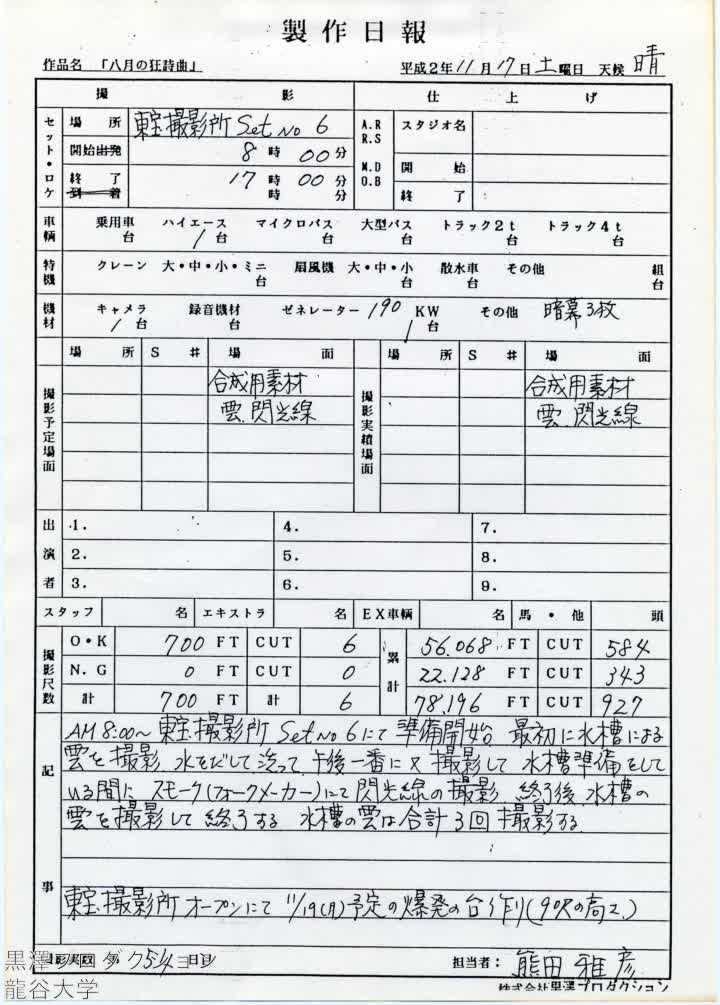 製作日報
作品名 「八月の狂詩曲」 平成2年11月17日土曜日 天候 晴
撮 影 仕上げ
セット・ロケ 場所 東宝撮影所 Set No 6 A.R R.S スタジオ名
開始出発 8時00分 M.D O.B 開始
終了 17時00分 終了
到着 時 分
車輌 乗用車 台 ハイエース 1台 マイクロバス 台 大型バス 台 トラック2t 台 トラック4t 台
特機 クレーン 大・中・小・ミニ 台 扇風機 大・中・小 台 散水車 台 その他 組 台
機材 キャメラ 1台 録音機材 ゼネレーター 190KW 1台 その他 暗幕3枚
場所 S# 場面 場所 S# 場面
撮影予定場面 合成用素材 撮影実績場面 合成用素材
雲.閃光線 雲.閃光線
出演者 1. 4. 7.
2. 5. 8.
3. 6. 9.
スタッフ 名 エキストラ 名 EX車輌 名 馬・他 頭
撮影尺数 O・K 700 FT CUT 6 累計 56.068 FT CUT 584
N.G 0 FT CUT 0 22.128 FT CUT 343
計 700 FT 計 6 78.196 FT CUT 927
記事
AM 8:00~ 東宝撮影所 Set No 6にて 準備開始 最初に水槽による
雲を撮影 水をだして洗って 午後一番に 撮影して 水槽準備をして
いる間に スモーク(フォークメーカー)にて閃光線の撮影 終了後 水槽の
雲を撮影して終了する 水槽の雲は合計3回撮影する
東宝撮影所オープンにて 11/19(月)予定の爆発の台作り(9尺の高さ)
撮影実数 54日 担当者: 熊田雅彦
株式会社黒澤プロダクション
黒澤プロダク
龍谷大学